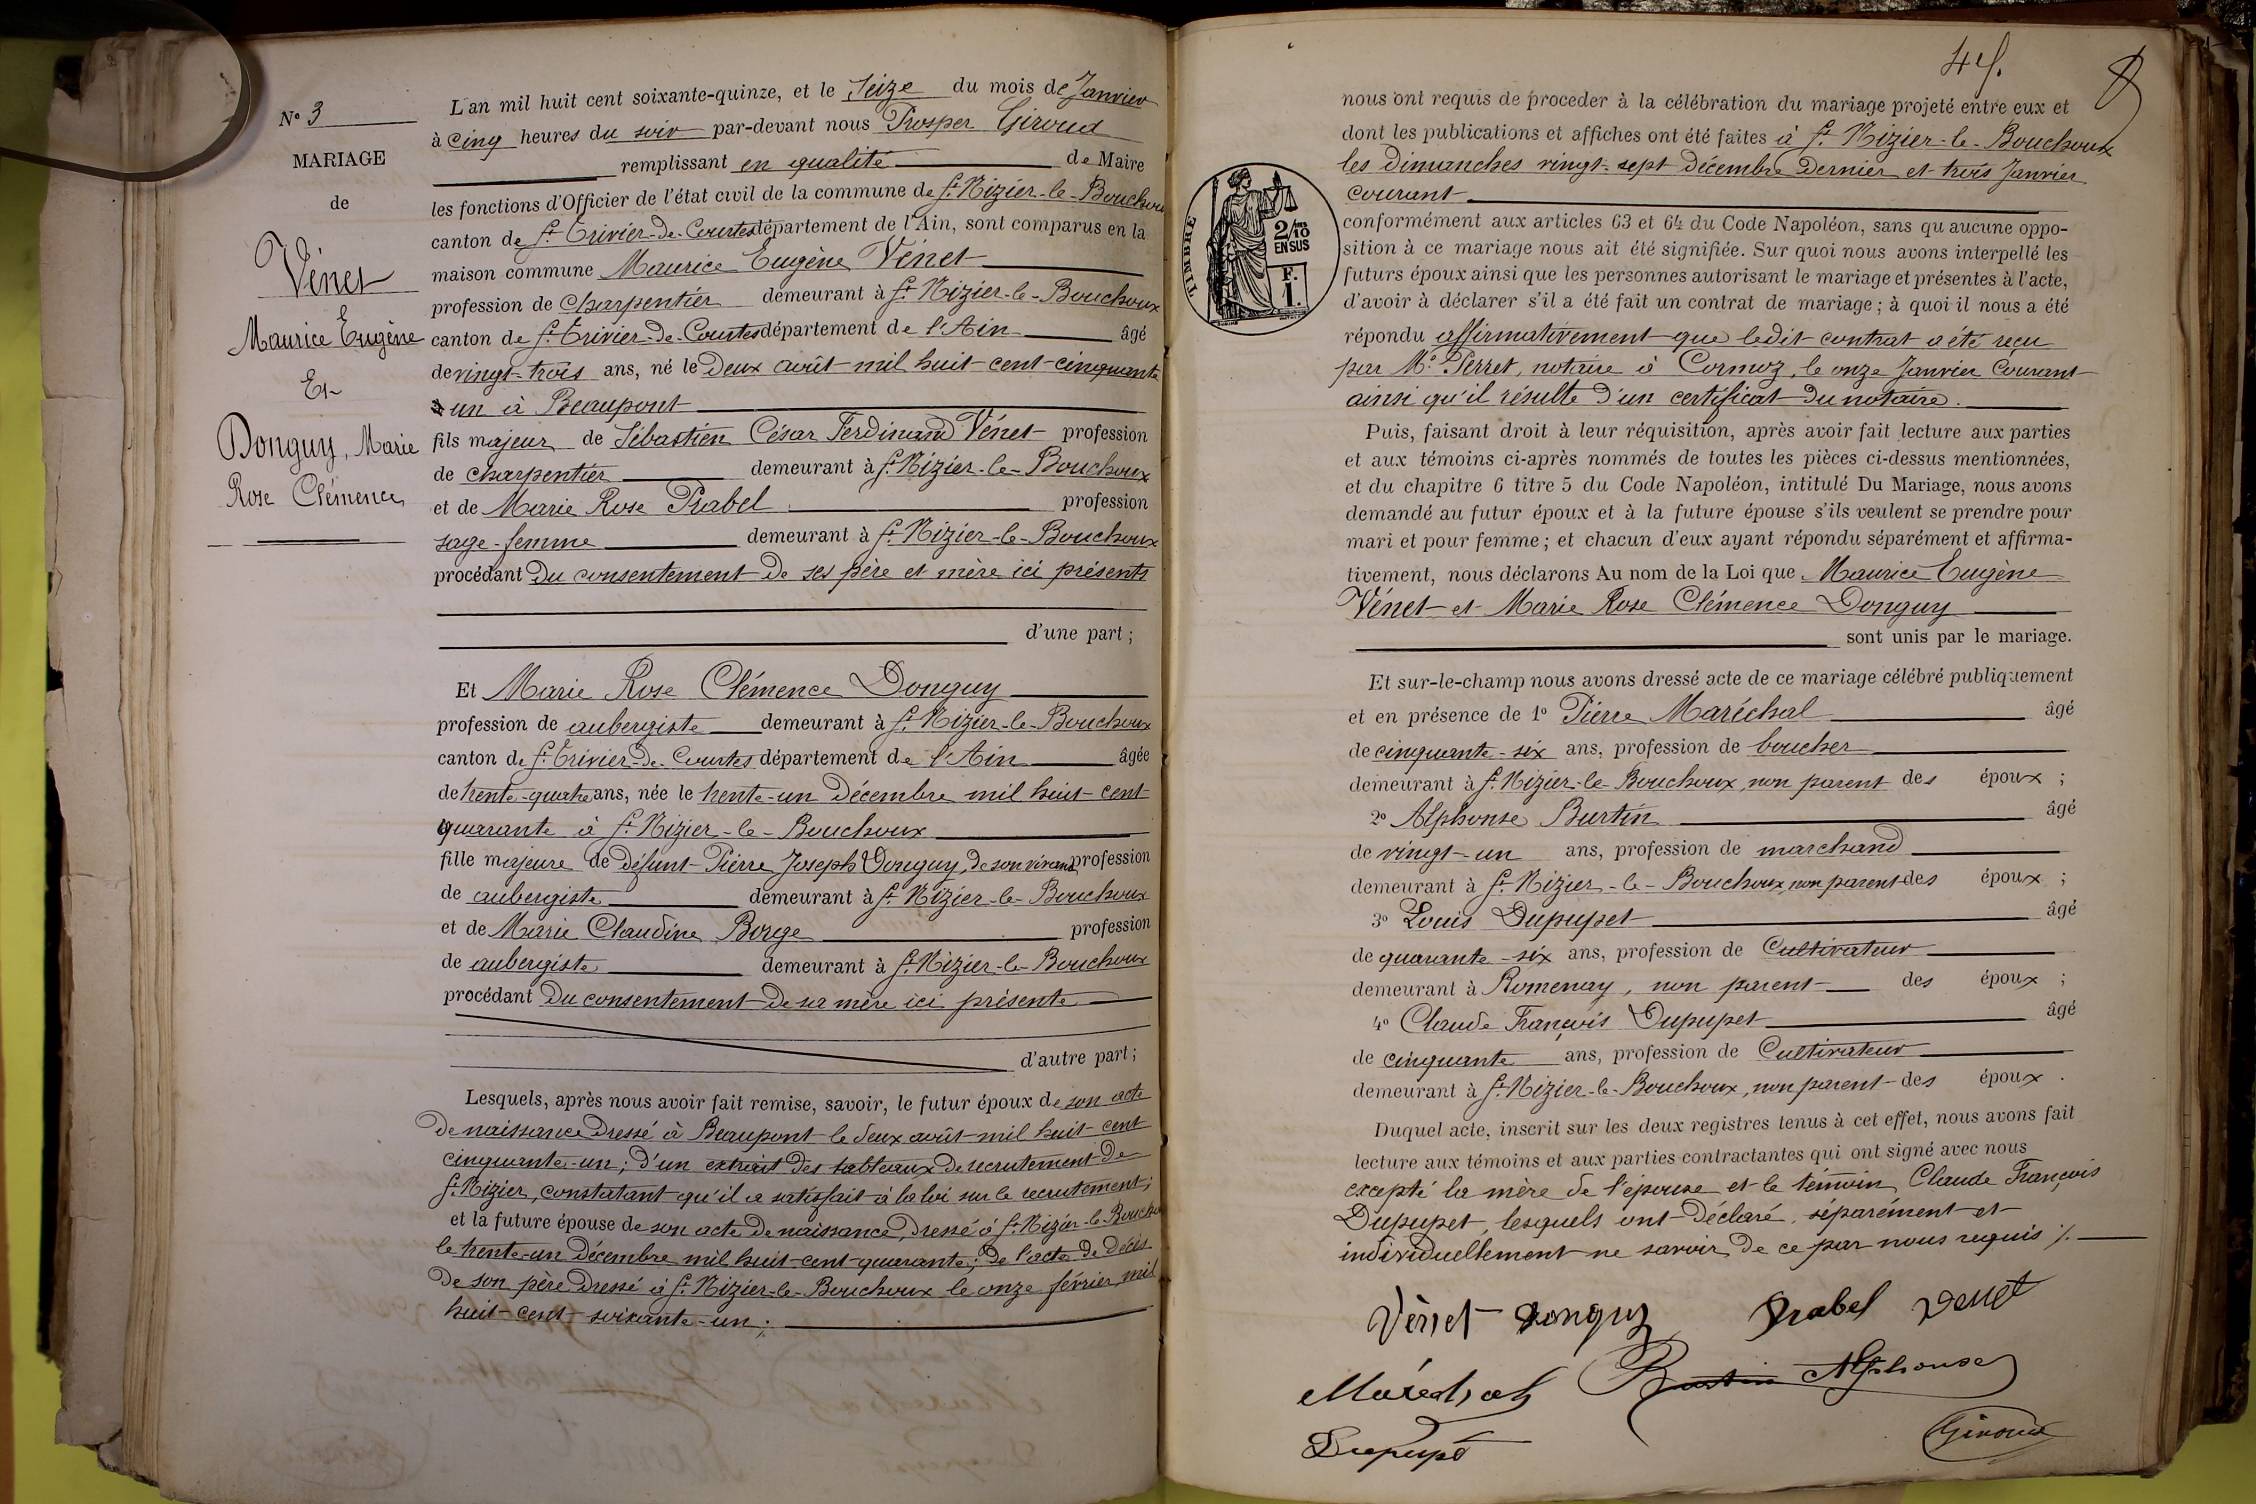 N° 3
MARIAGE
de
Vénet
Maurice Eugène
Et
Donguy, Marie
Rose Clémence
L'an mil huit cent soixante-quinze, et le Seize du mois de Janvier
à cinq heures du soir par-devant nous Prosper Giroud
remplissant en qualité de Maire
les fonctions d'Officier de l'état civil de la commune de St Nizier-le-Bouchoux
canton de St Trivier-de-Courtes département de l'Ain, sont comparus en la
maison commune Maurice Eugène Vénet
profession de charpentier demeurant à St Nizier-le-Bouchoux
canton de St Trivier-de-Courtes département de l'Ain âgé
de vingt-trois ans, né le deux août mil huit-cent-cinquante
un à Beaupont
fils majeur de Sébastien César Ferdinand Vénet profession
de charpentier demeurant à St Nizier-le-Bouchoux
et de Marie Rose Prabel profession
sage-femme demeurant à St Nizier-le-Bouchoux
procédant du consentement de ses père et mère ici présents
d'une part ;
Et Marie Rose Clémence Donguy
profession de aubergiste demeurant à St Nizier-le-Bouchoux
canton de St Trivier-de-Courtes département de l'Ain âgée
de trente-quatre ans, née le trente-un Décembre mil huit-cent
quarante à St Nizier-le-Bouchoux
fille majeure de défunt Pierre Joseph Donguy, de son vivant profession
de aubergiste demeurant à St Nizier-le-Bouchoux
et de Marie Claudine Borge profession
de aubergiste demeurant à St Nizier-le-Bouchoux
procédant du consentement de sa mère ici présente
d'autre part ;
Lesquels, après nous avoir fait remise, savoir, le futur époux de son acte
de naissance dressé à Beaupont le deux août mil huit-cent
cinquante-un ; d'un extrait des tableaux de recrutement de
St Nizier, constatant qu'il a satisfait à la loi sur le recrutement ;
et la future épouse de son acte de naissance, dressé à St Nizier-le-Bouchoux
le trente-un Décembre mil huit-cent-quarante ; de l'acte de décès
de son père dressé à St Nizier-le-Bouchoux le onze février mil
huit-cent-soixante-un ;
44.
nous ont requis de proceder à la célébration du mariage projeté entre eux et
dont les publications et affiches ont été faites à St Nizier-le-Bouchoux
les dimanches vingt-sept décembre dernier et trois Janvier
courant
TIMBRE
2/10 EN SUS
F. 1.
conformément aux articles 63 et 64 du Code Napoléon, sans qu'aucune oppo-
sition à ce mariage nous ait été signifiée. Sur quoi nous avons interpellé les
futurs époux ainsi que les personnes autorisant le mariage et présentes à l'acte,
d'avoir à déclarer s'il a été fait un contrat de mariage ; à quoi il nous a été
répondu affirmativement que ledit contrat a été reçu
par Me Perret, notaire à Cormoz, le onze Janvier courant
ainsi qu'il résulte d'un certificat du notaire.
Puis, faisant droit à leur réquisition, après avoir fait lecture aux parties
et aux témoins ci-après nommés de toutes les pièces ci-dessus mentionnées,
et du chapitre 6 titre 5 du Code Napoléon, intitulé Du Mariage, nous avons
demandé au futur époux et à la future épouse s'ils veulent se prendre pour
mari et pour femme ; et chacun d'eux ayant répondu séparément et affirma-
tivement, nous déclarons Au nom de la Loi que Maurice Eugène
Vénet et Marie Rose Clémence Donguy
sont unis par le mariage.
Et sur-le-champ nous avons dressé acte de ce mariage célébré publiquement
et en présence de 1° Pierre Maréchal âgé
de cinquante-six ans, profession de boucher
demeurant à St Nizier-le-Bouchoux, non parent des époux ;
2° Alphonse Burtin âgé
de vingt-un ans, profession de marchand
demeurant à St Nizier-le-Bouchoux, non parent des époux ;
3° Louis Dupupet âgé
de quarante-six ans, profession de Cultivateur
demeurant à Romenay, non parent des époux ;
4° Claude François Dupupet âgé
de cinquante ans, profession de Cultivateur
demeurant à St Nizier-le-Bouchoux, non parent des époux.
Duquel acte, inscrit sur les deux registres tenus à cet effet, nous avons fait
lecture aux témoins et aux parties contractantes qui ont signé avec nous
excepté la mère de l'épouse et le témoin Claude François
Dupupet, lesquels ont déclaré, séparément et
individuellement ne savoir, de ce par nous requis ./.
Vénet Donguy Prabel Venet
Maréchal Burtin Alphonse
Dupupet Giroud